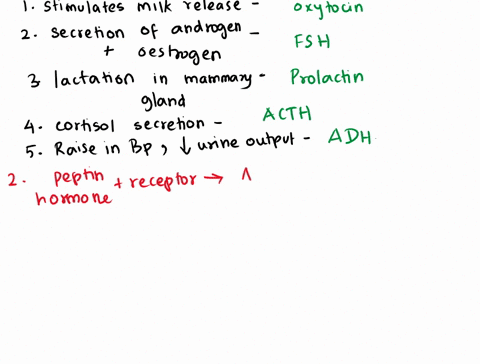 1. stimulates milk release - oxytocin
2. secretion of androgen - FSH
+ oestrogen
3 lactation in mammary - Prolactin
gland
4. cortisol secretion - ACTH
5. Raise in BP, ↓ urine output - ADH
2. peptin + receptor →
hormone